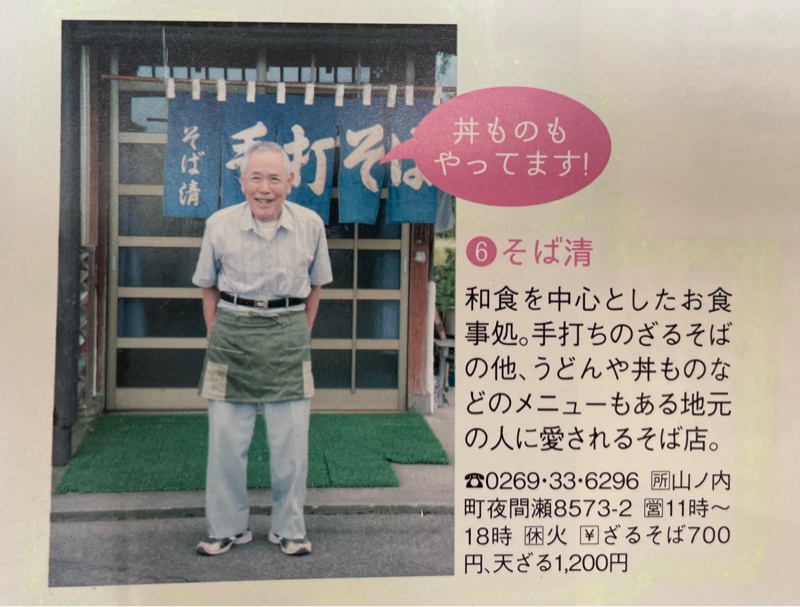 そば清
手打そば
丼ものも
やってます!
❻そば清
和食を中心としたお食
事処。手打ちのざるそば
の他、うどんや丼ものな
どのメニューもある地元
の人に愛されるそば店。
☎0269・33・6296 所山ノ内
町夜間瀬8573-2 営11時〜
18時 休火 ¥ざるそば700
円、天ざる1,200円